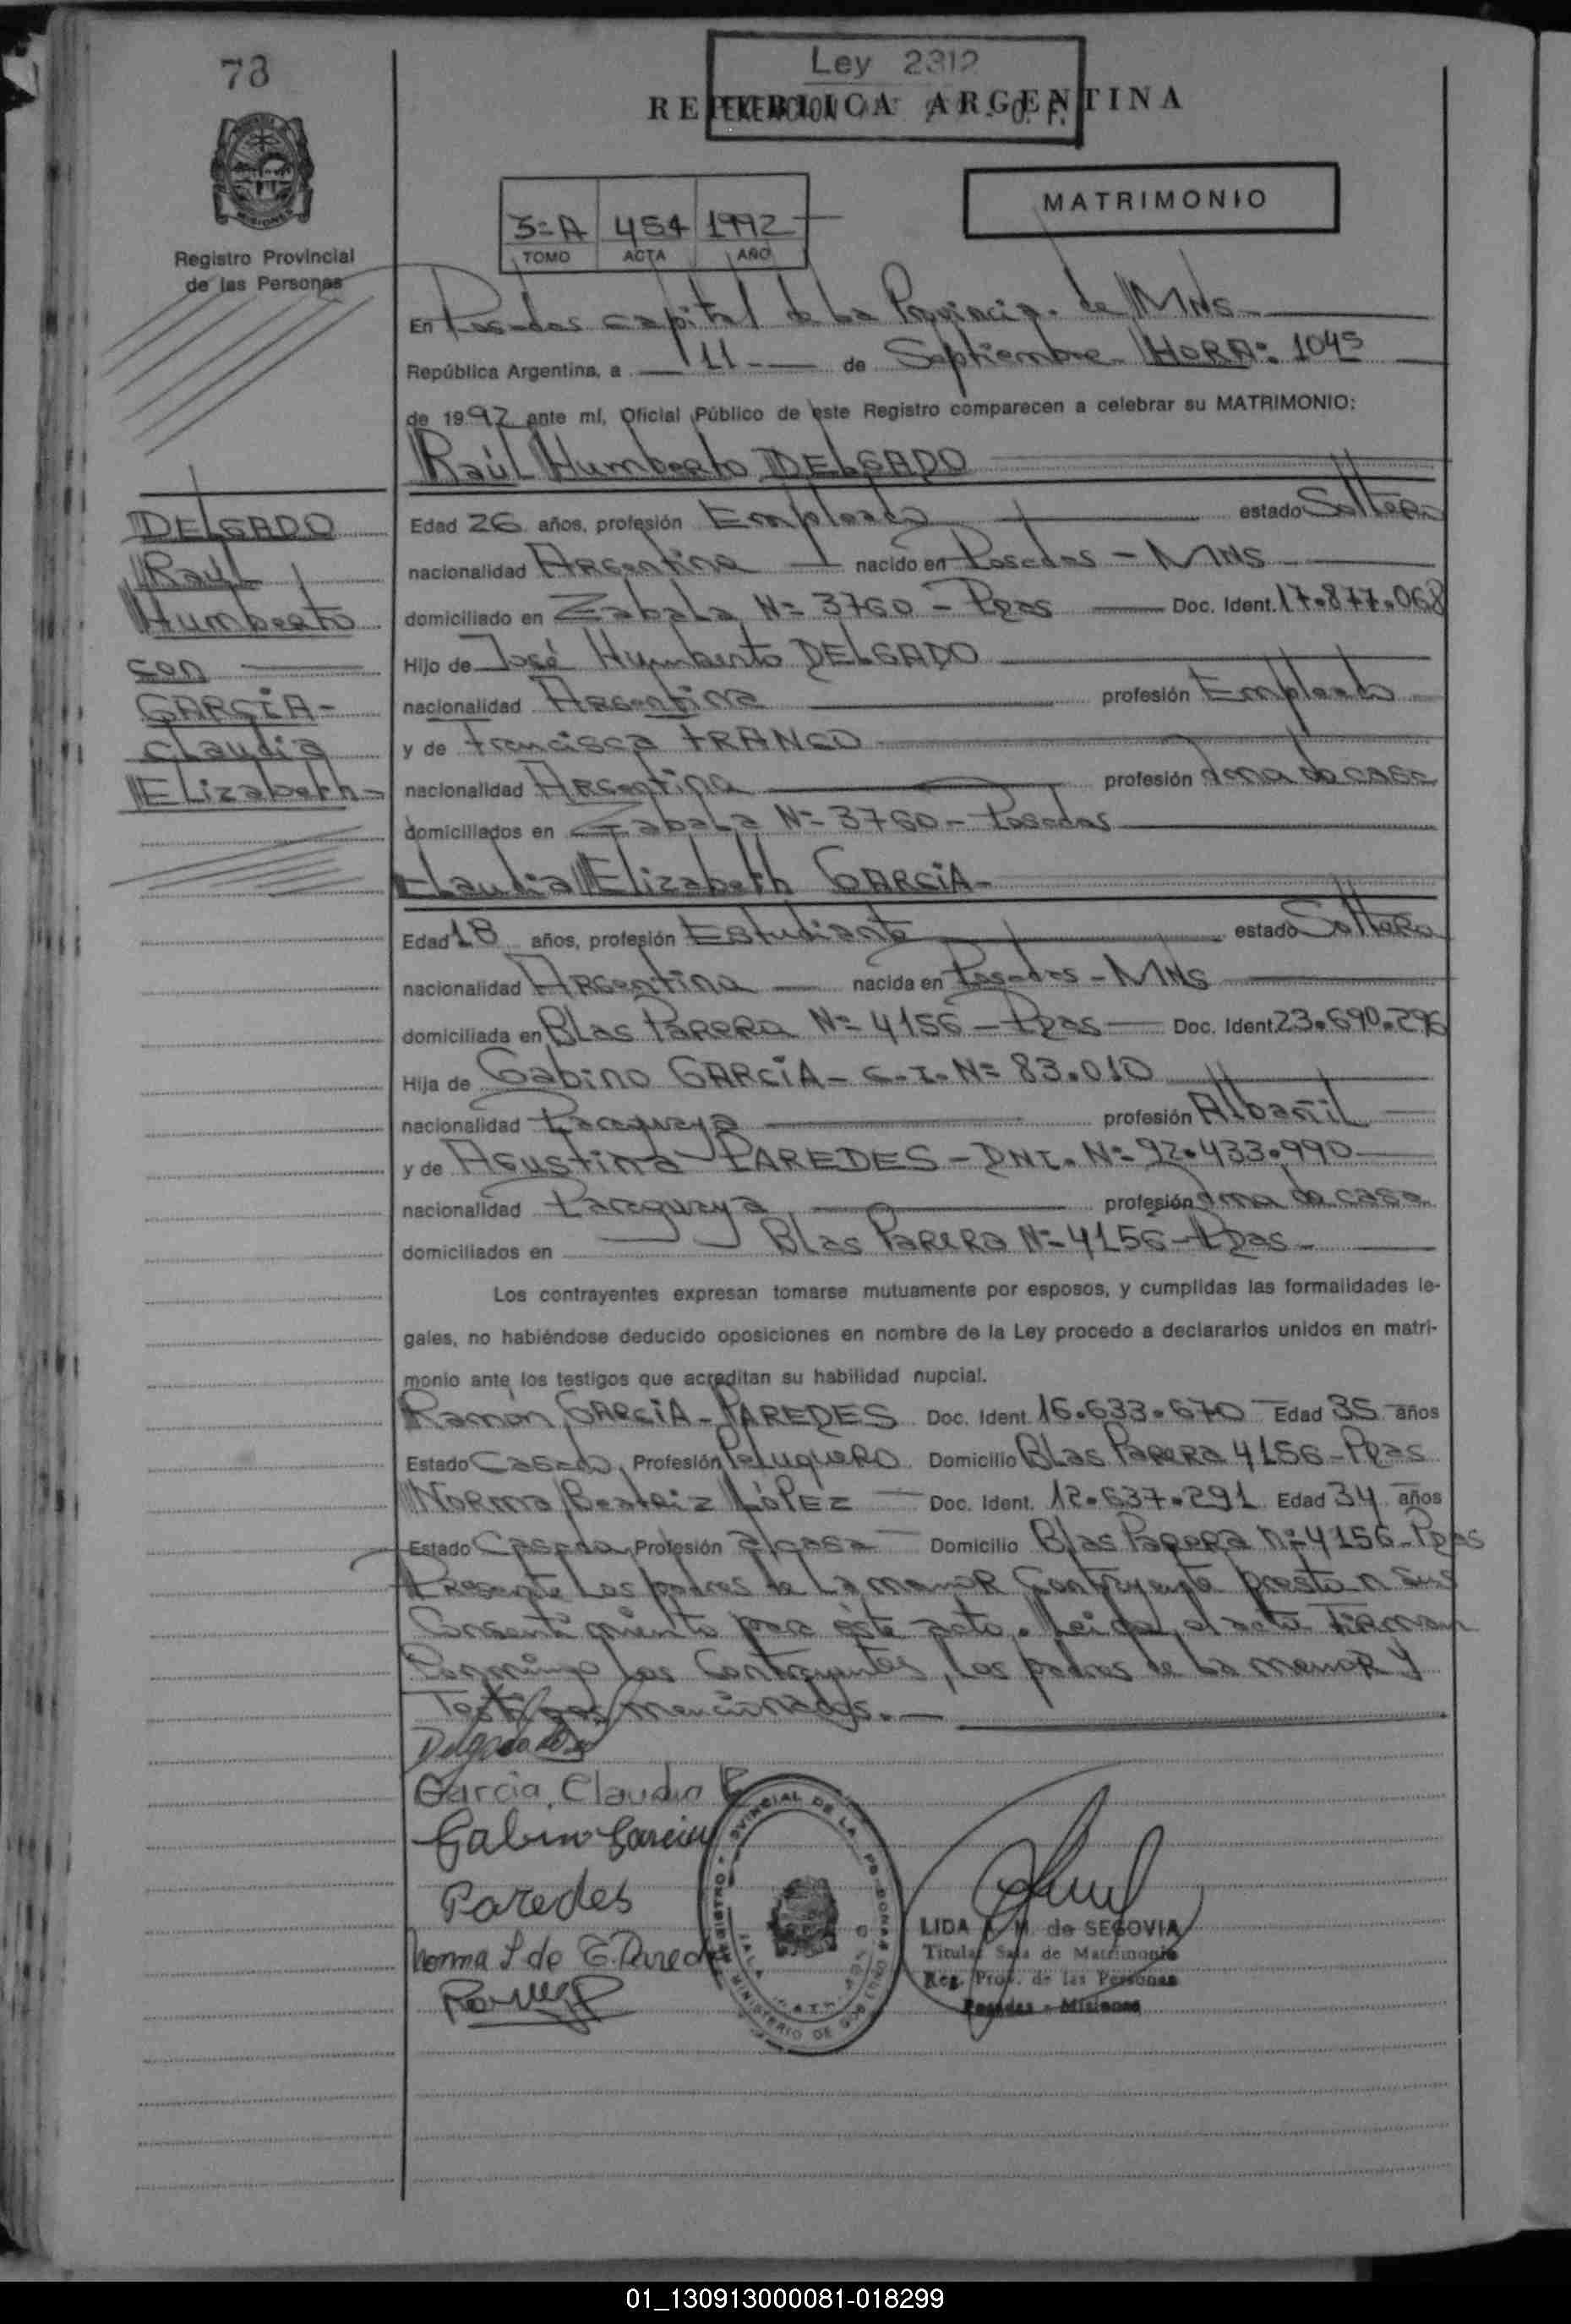 78
Ley 2312
REPUBLICA ARGENTINA
MATRIMONIO
3=A 454 1992
TOMO ACTA AÑO
Registro Provincial
de las Personas
En Posadas capital de La Provincia de MNS
República Argentina, a 11 de Septiembre HORA: 1045
de 1992 ante mí, Oficial Público de este Registro comparecen a celebrar su MATRIMONIO:
Raúl Humberto DELGADO
DELGADO
Raúl
Humberto
con
GARCIA-
Claudia
Elizabeth-
Edad 26 años, profesión Empleado estado Soltero
nacionalidad Argentina nacido en Posadas - MNS
domiciliado en Zabala Nº 3760 - Pdas Doc. Ident. 17.877.068
Hijo de José Humberto DELGADO
nacionalidad Argentina profesión Empleado
y de Francisca FRANCO
nacionalidad Argentina profesión Ama de casa
domiciliados en Zabala Nº 3760 - Posadas
Claudia Elizabeth GARCIA-
Edad 18 años, profesión Estudiante estado Soltera
nacionalidad Argentina nacida en Posadas - MNS
domiciliada en Blas Parera Nº 4156 - Pdas Doc. Ident. 23.690.296
Hija de Gabino GARCIA - C.I. Nº 83.010
nacionalidad Paraguaya profesión Albañil
y de Agustina PAREDES - DNI. Nº 92.433.990
nacionalidad Paraguaya profesión Ama de casa
domiciliados en Blas Parera Nº 4156 - Pdas
Los contrayentes expresan tomarse mutuamente por esposos, y cumplidas las formalidades le-
gales, no habiéndose deducido oposiciones en nombre de la Ley procedo a declararlos unidos en matri-
monio ante los testigos que acreditan su habilidad nupcial.
Ramón GARCIA - PAREDES Doc. Ident. 16.633.670 Edad 35 años
Estado Casado Profesión Peluquero Domicilio Blas Parera 4156 - Pdas
Norma Beatriz LóPEZ Doc. Ident. 12.637.291 Edad 34 años
Estado Casada Profesión a/casa Domicilio Blas Parera nº 4156 - Pdas
Presente Los padres de La menor Contrayente prestan sus
Consentimiento para éste acto. Leída el acta Firman
Conmigo los Contrayentes, los padres de la menor y
Testigos mencionados.
Garcia, Claudia E
Gabino Garcia
Paredes
Norma L de
LIDA M. de SEGOVIA
Titular Sala de Matrimonio
Reg. Prov. de las Personas
Posadas - Misiones
01_130913000081-018299